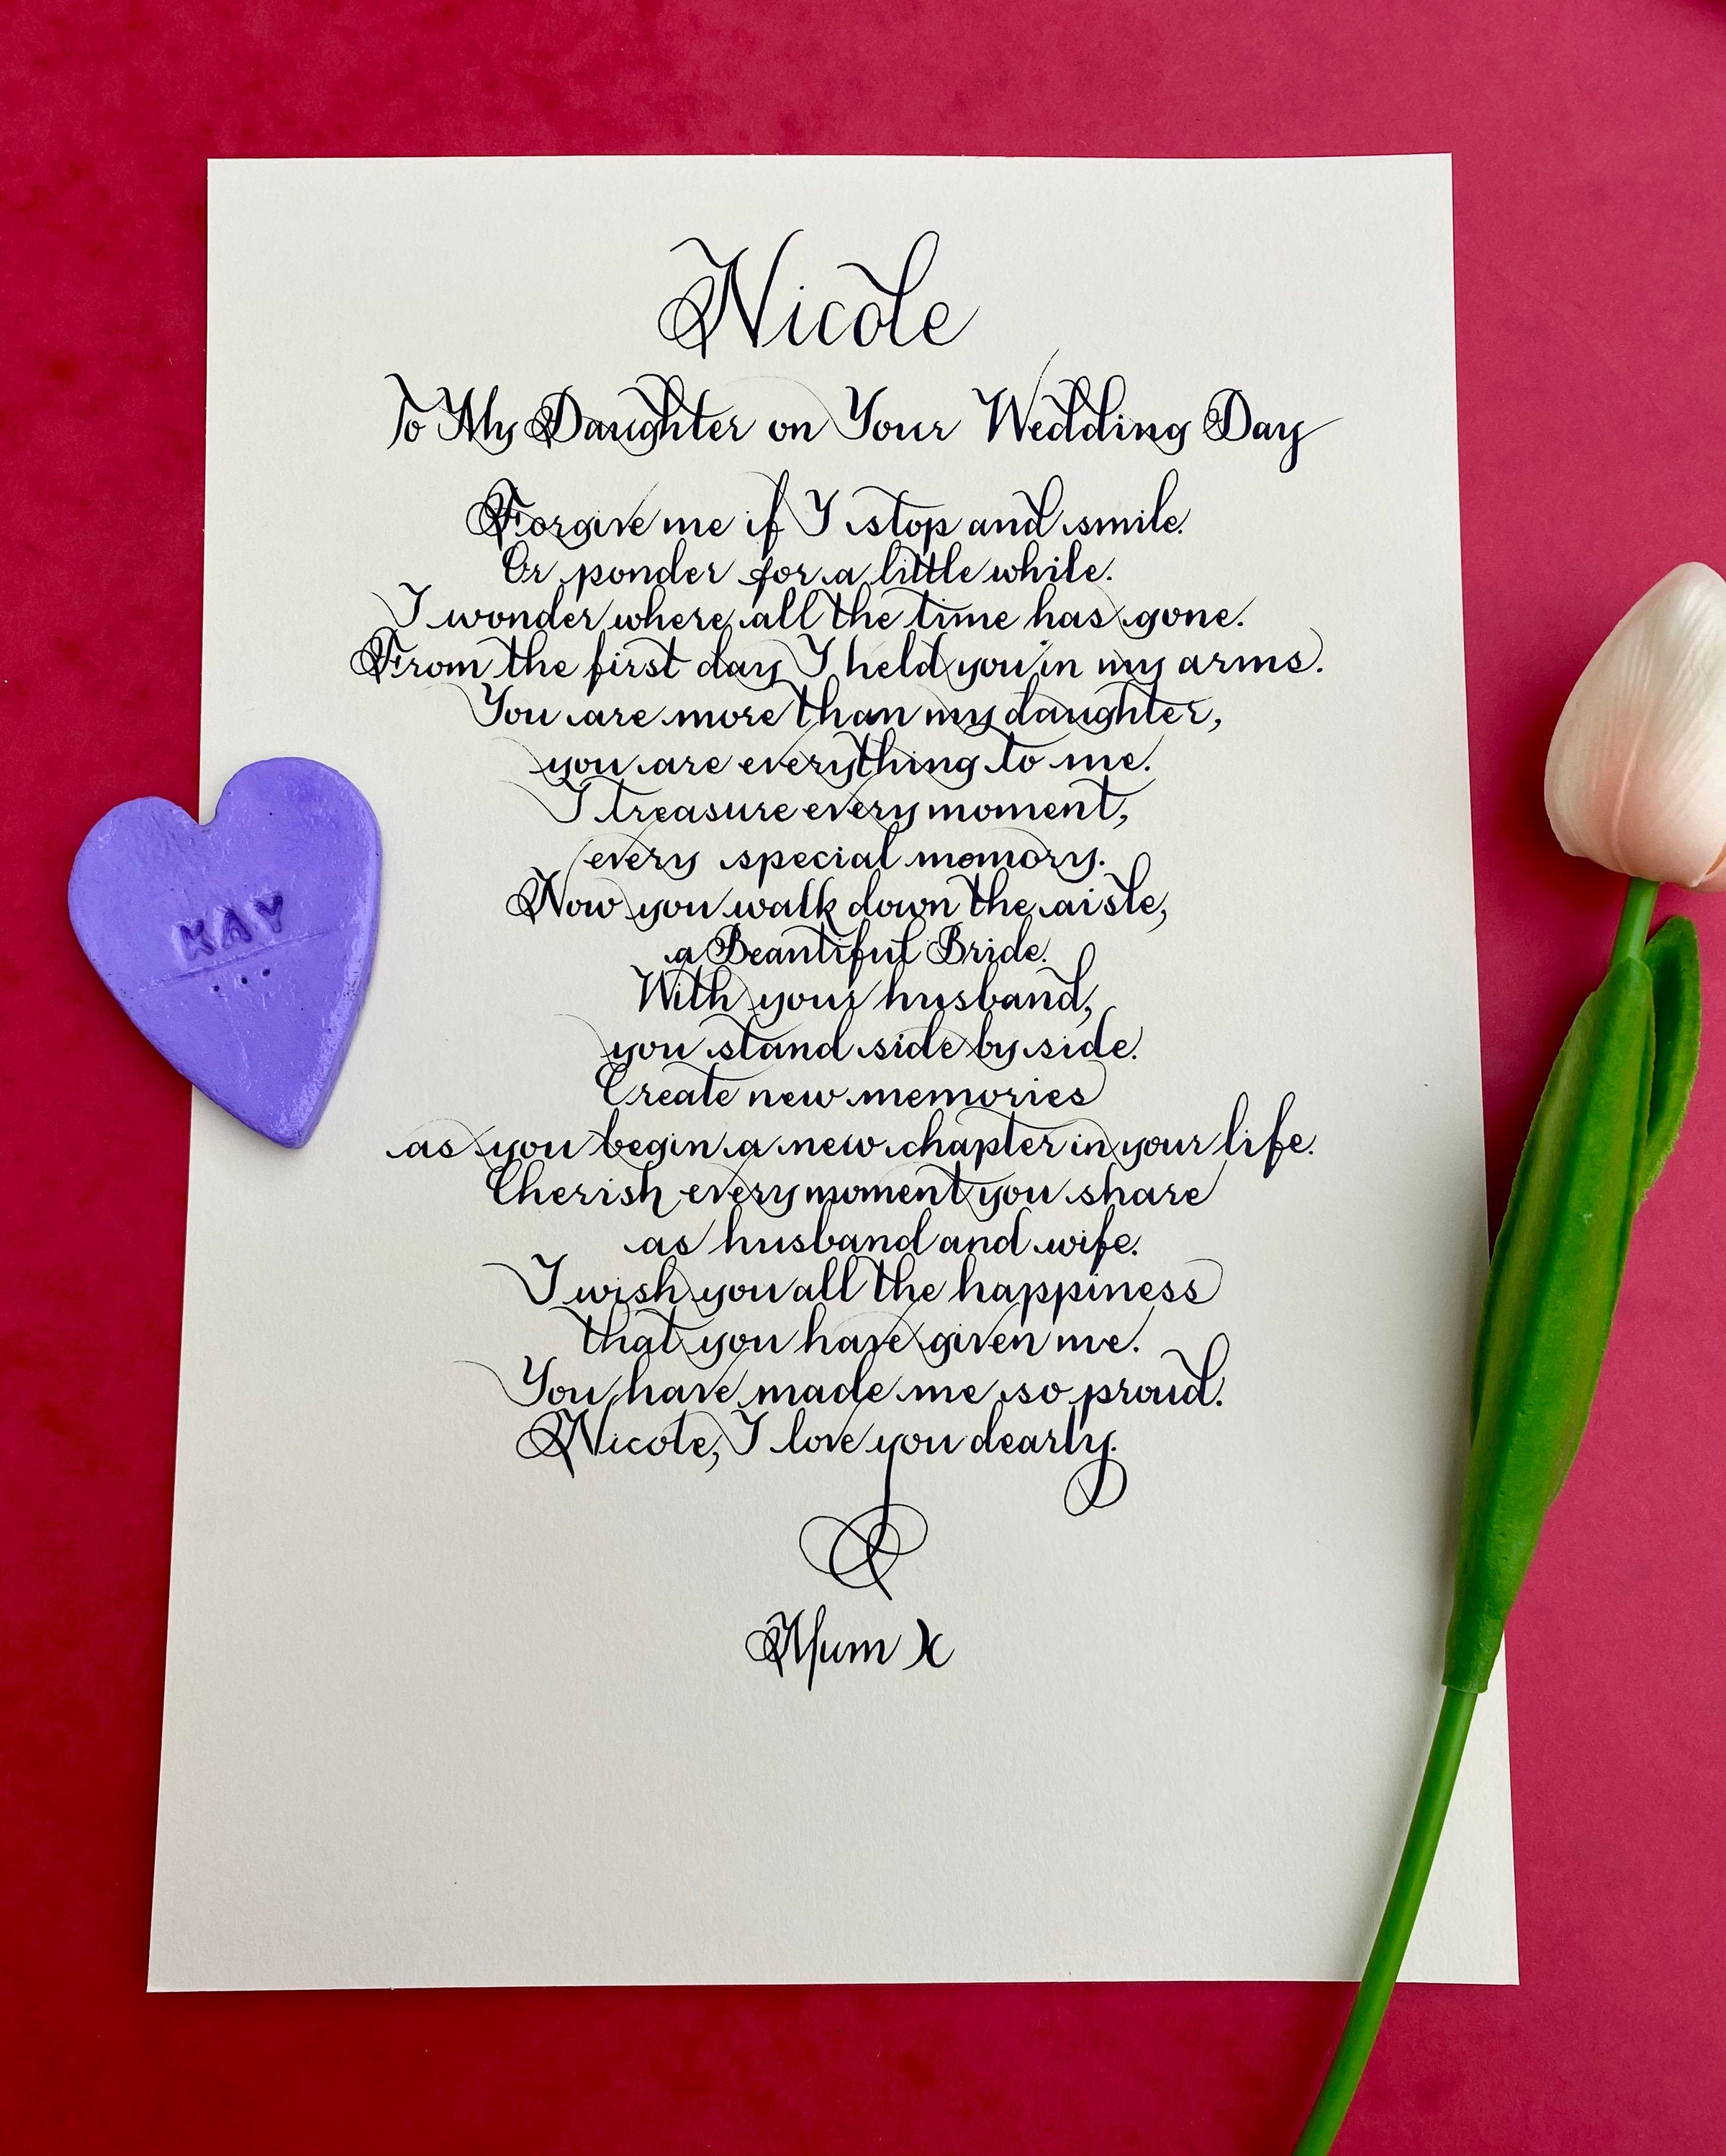 Nicole
To My Daughter on Your Wedding Day
Forgive me if I stop and smile.
Or ponder for a little while.
I wonder where all the time has gone.
From the first day I held you in my arms.
You are more than my daughter,
you are everything to me.
I treasure every moment,
every special momory.
Now you walk down the aisle,
a Beautiful Bride.
With your husband,
you stand side by side.
Create new memories
as you begin a new chapter in your life.
Cherish every moment you share
as husband and wife.
I wish you all the happiness
that you have given me.
You have made me so proud.
Nicole, I love you dearly.
Mum X
KAY